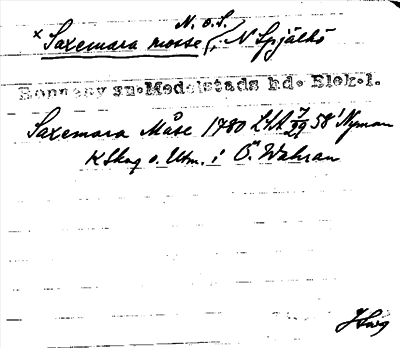 N. o. S.
× Saxemara mosse, N Spjälkö
Ronneby sn. Medelstads hd. Blek. l.
Saxemara Måse 1780 LSA 7/99 58¹ Nyman
K Skog o. Utm. i Ö. Wahran